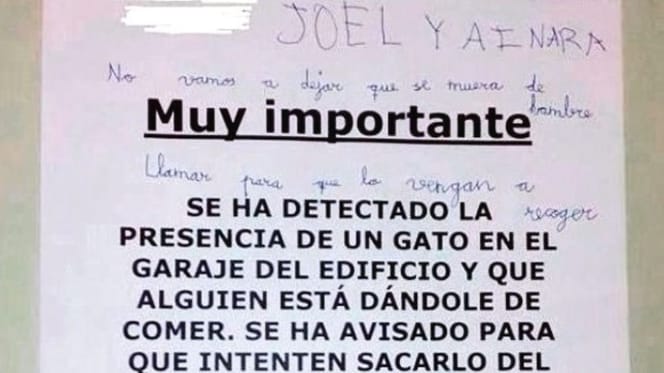 JOEL Y AINARA
No vamos a dejar que se muera de
hambre
Muy importante
Llamar para que lo vengan a
recoger
SE HA DETECTADO LA
PRESENCIA DE UN GATO EN EL
GARAJE DEL EDIFICIO Y QUE
ALGUIEN ESTÁ DÁNDOLE DE
COMER. SE HA AVISADO PARA
QUE INTENTEN SACARLO DEL